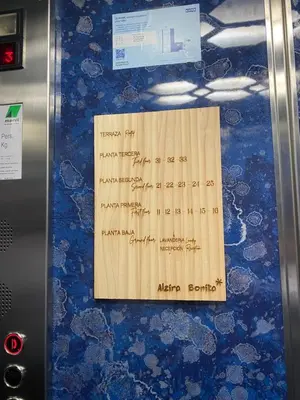 3
TERRAZA Roof
PLANTA TERCERA
Third floor 31 32 33
PLANTA SEGUNDA
Second floor 21 22 23 24 25
PLANTA PRIMERA
First floor 11 12 13 14 15 16
PLANTA BAJA
Ground floor LAVANDERIA Laundry
RECEPCIÓN Reception
Alzira Bonita*
Kg
D